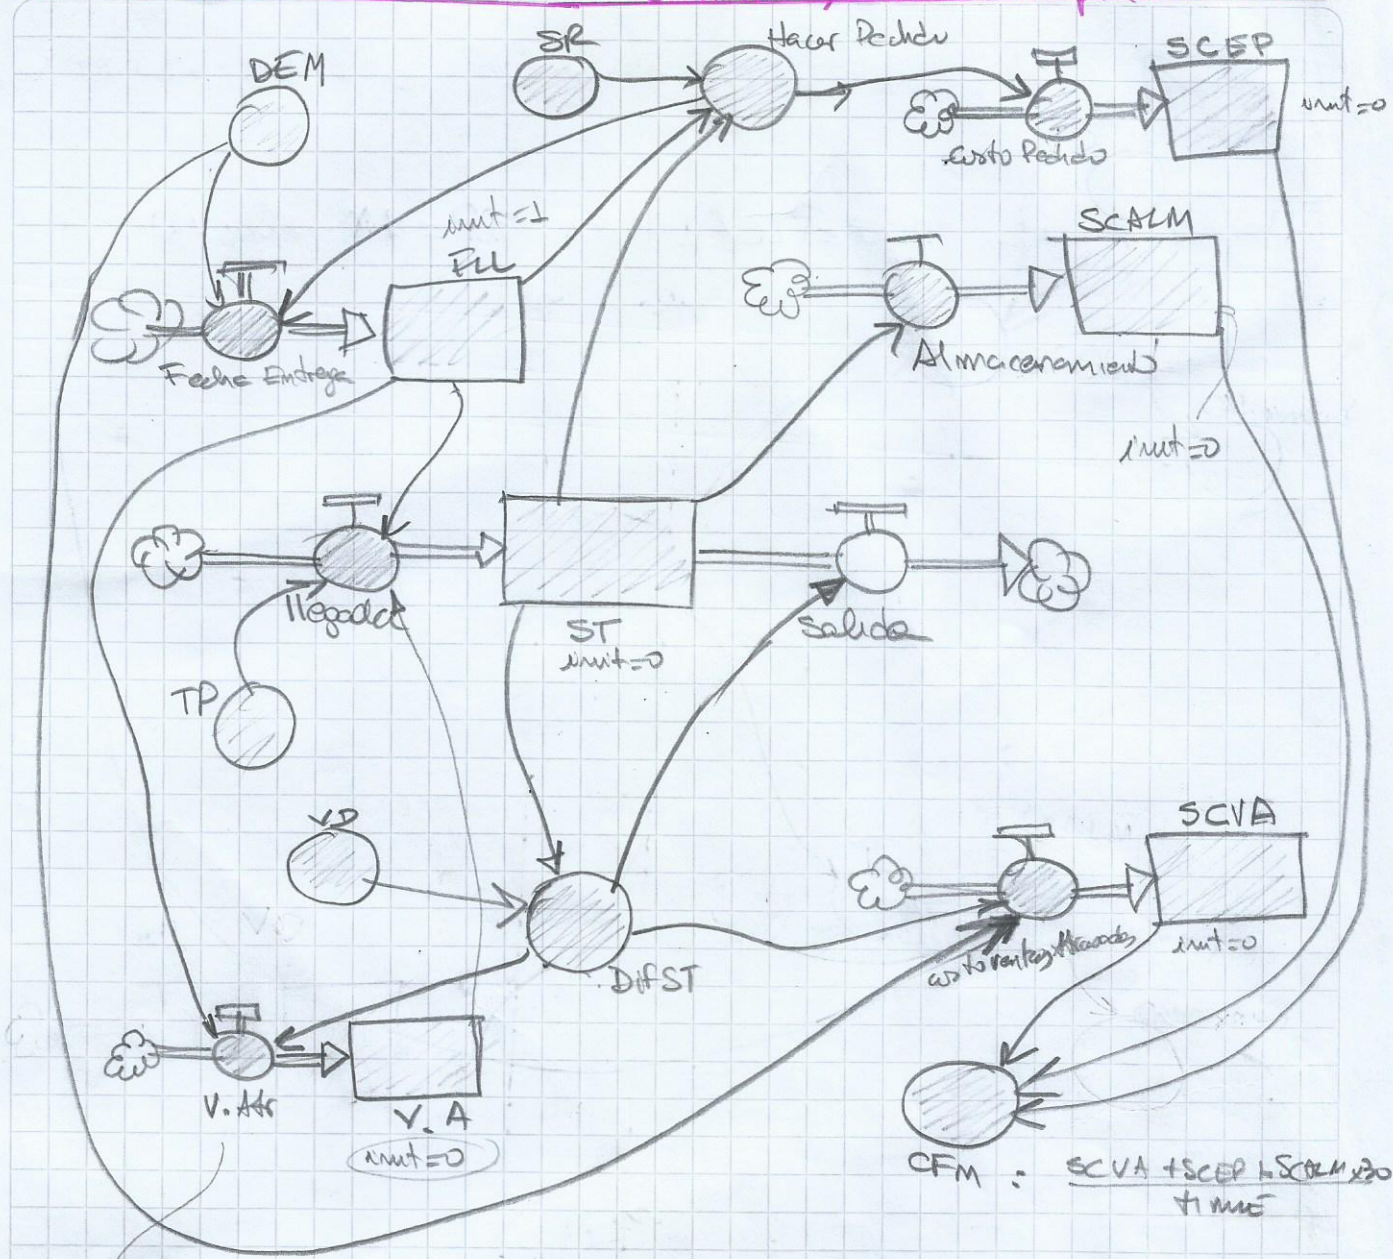 DEM
SR
Hacer Pedido
SCEP
init=0
costo Pedido
init=1
FLL
SCALM
Fecha Entrega
Almacenamiento
init=0
llegada
ST
init=0
Salida
TP
VD
SCVA
costo ventas Atrasadas
init=0
DifST
V. Atr
V.A
init=0
CFM : SCVA + SCEP + SCALM x30
time